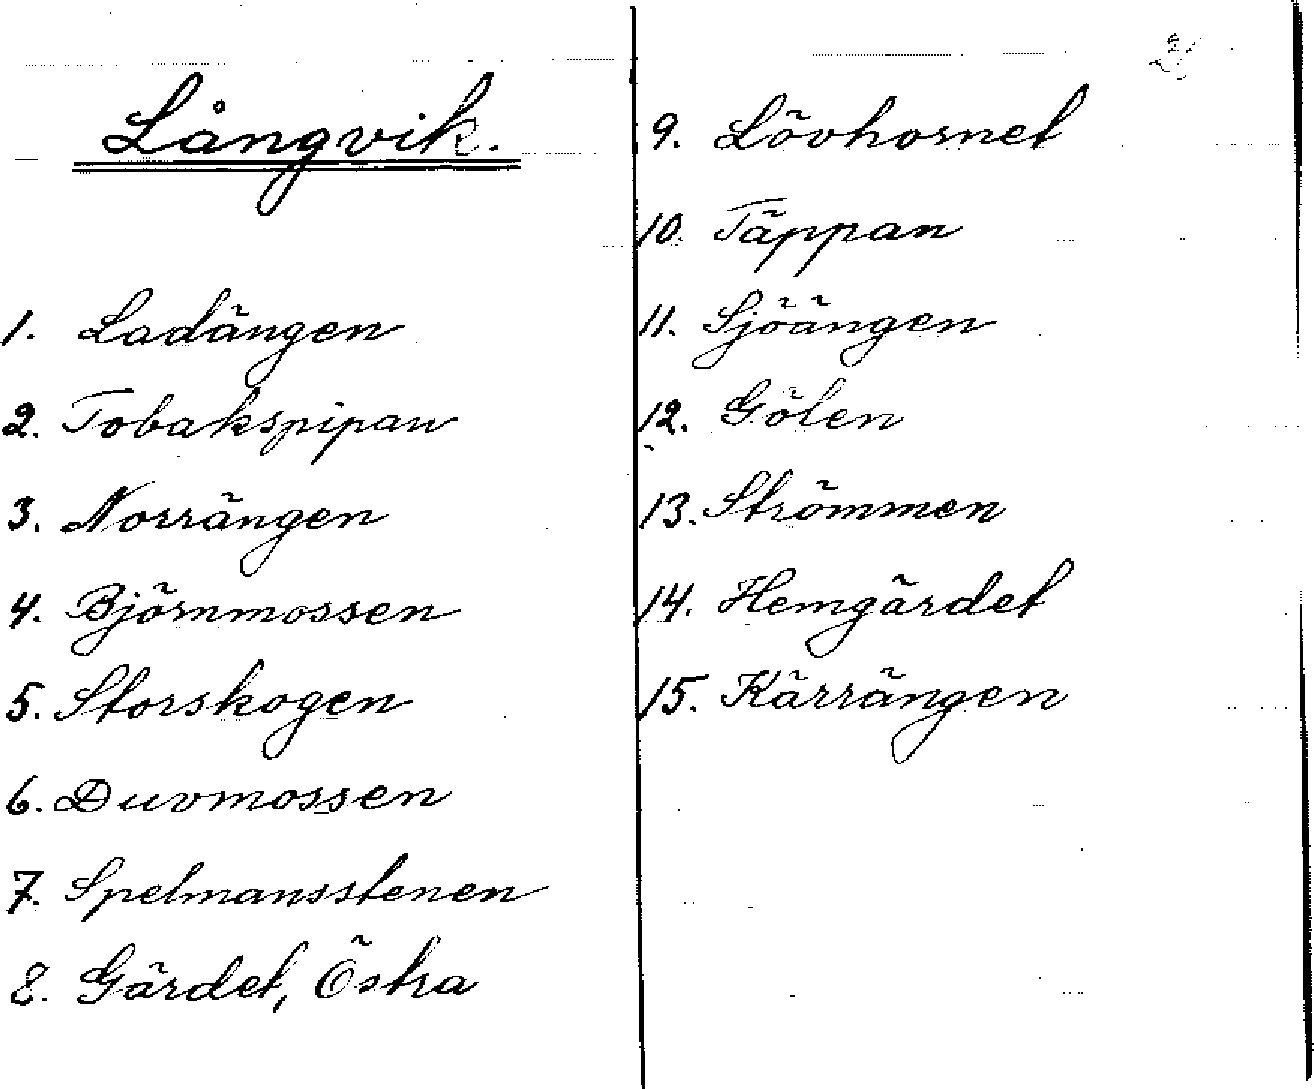 Långvik.
1. Ladängen
2. Tobakspipan
3. Norrängen
4. Björnmossen
5. Storskogen
6. Duvmossen
7. Spelmansstenen
8. Gärdet, Östra
9. Lövhornet
10. Täppan
11. Sjöängen
12. Gölen
13. Strömmen
14. Hemgärdet
15. Kärrängen